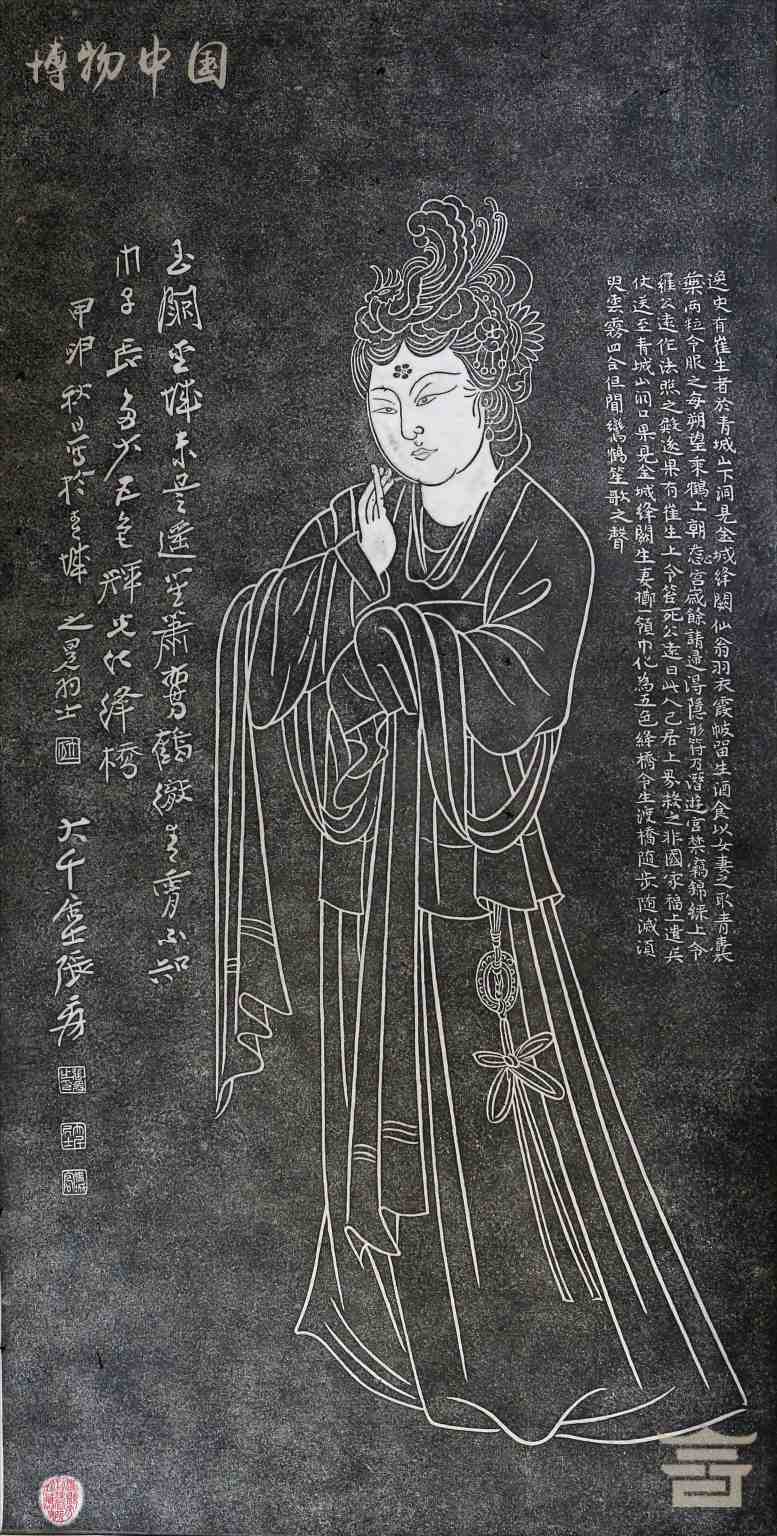 博物中国
逸史有崔生者於青城山下洞見金城绛闕仙翁羽衣霞帔留生酒食以女妻之取青囊
藥两粒令服之每朔望乘鶴上朝蕊宫歲餘請還得隱形符乃潛遊宫禁竊錦綵上令
羅公遠作法照之殿遂果有崔生上令笞死公遠曰此人已居上界殺之非國家福上遣兵
仗送至青城山洞口果見金城绛闕生妻擲一領巾化為五色绛橋令生渡橋随步随滅須
臾雲霧四合但聞鸞鶴笙歌之聲
玉關金城未是遥笙簫鸞鶴徹青霄不知
巾子長多少五色輝光化绛橋
甲申秋日寫於青城
大千居士張爰